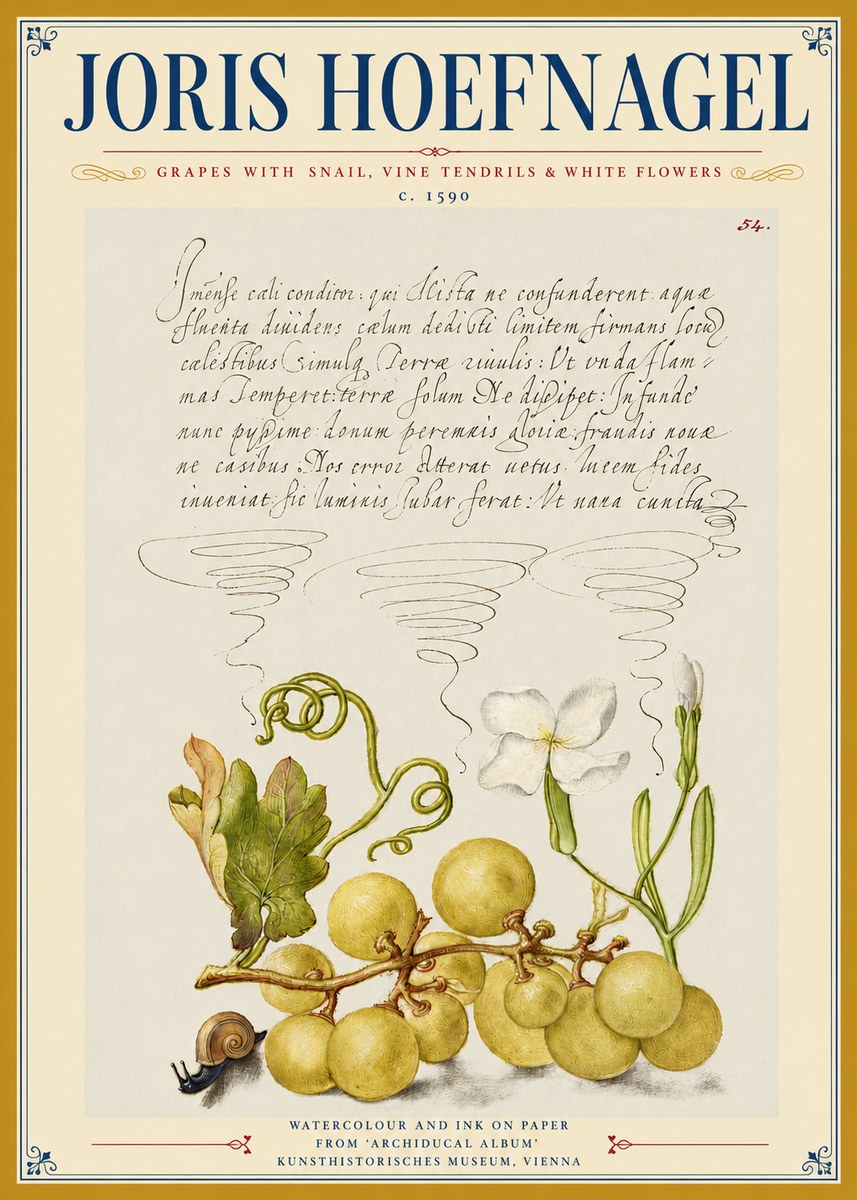 JORIS HOEFNAGEL
GRAPES WITH SNAIL, VINE TENDRILS & WHITE FLOWERS
c. 1590
54.
Imense cæli conditor: qui Mista ne confunderent aquæ
fluenta diuidens cælum dedisti limitem firmans locū
cælestibus Simulq Terræ riuulis: Vt vnda flam-
mas Temperet: terræ solum Ne dissipet: Infunde
nunc pyssime donum peremnis gloriæ: fraudis nouæ
ne casibus Nos error Atterat uetus. lucem fides
inueniat: sic luminis Jubar ferat: Vt uana cuncta
WATERCOLOUR AND INK ON PAPER
FROM ‘ARCHIDUCAL ALBUM’
KUNSTHISTORISCHES MUSEUM, VIENNA